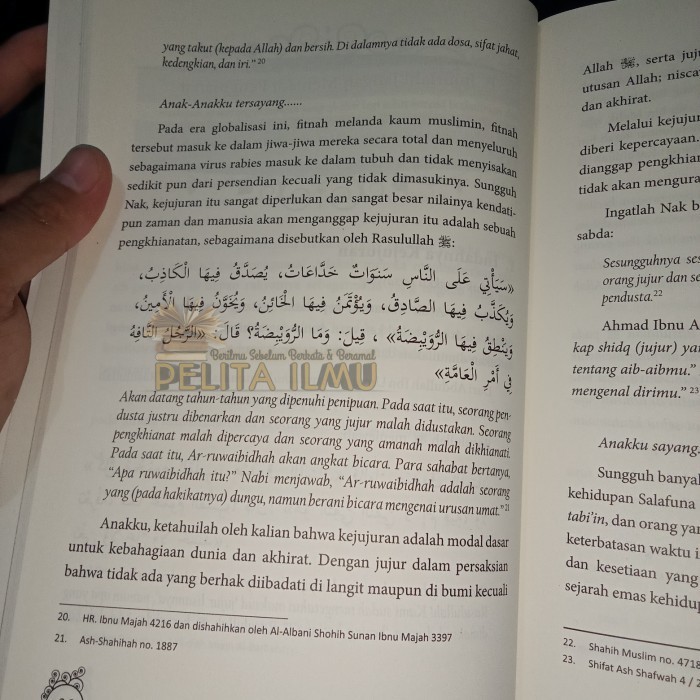 yang takut (kepada Allah) dan bersih. Di dalamnya tidak ada dosa, sifat jahat,
kedengkian, dan iri.” 20
Anak-Anakku tersayang......
Pada era globalisasi ini, fitnah melanda kaum muslimin, fitnah
tersebut masuk ke dalam jiwa-jiwa mereka secara total dan menyeluruh
sebagaimana virus rabies masuk ke dalam tubuh dan tidak menyisakan
sedikit pun dari persendian kecuali yang tidak dimasukinya. Sungguh
Nak, kejujuran itu sangat diperlukan dan sangat besar nilainya kendati-
pun zaman dan manusia akan menganggap kejujuran itu adalah sebuah
pengkhianatan, sebagaimana disebutkan oleh Rasulullah ﷺ:
«سَيَأْتِي عَلَى النَّاسِ سَنَوَاتٌ خَدَّاعَاتُ، يُصَدَّقُ فِيهَا الْكَاذِبُ،
وَيُكَذَّبُ فِيهَا الصَّادِقُ، وَيُؤْتَمَنُ فِيهَا الْخَائِنُ، وَيُخَوَّنُ فِيهَا الْأَمِينُ،
وَيَنْطِقُ فِيهَا الرُّوَيْبِضَةُ» ، قِيلَ: وَمَا الرُّوَيْبِضَةُ؟ قَالَ: «الرَّجُلُ التَّافِهُ
فِي أَمْرِ الْعَامَّةِ»
Berilmu Sebelum Berkata & Beramal
PELITA ILMU
Akan datang tahun-tahun yang dipenuhi penipuan. Pada saat itu, seorang pen-
dusta justru dibenarkan dan seorang yang jujur malah didustakan. Seorang
pengkhianat malah dipercaya dan seorang yang amanah malah dikhianati.
Pada saat itu, Ar-ruwaibidhah akan angkat bicara. Para sahabat bertanya,
“Apa ruwaibidhah itu?” Nabi menjawab, “Ar-ruwaibidhah adalah seorang
yang (pada hakikatnya) dungu, namun berani bicara mengenai urusan umat.”21
Anakku, ketahuilah oleh kalian bahwa kejujuran adalah modal dasar
untuk kebahagiaan dunia dan akhirat. Dengan jujur dalam persaksian
bahwa tidak ada yang berhak diibadati di langit maupun di bumi kecuali
20. HR. Ibnu Majah 4216 dan dishahihkan oleh Al-Albani Shohih Sunan Ibnu Majah 3397
21. Ash-Shahihah no. 1887
Allah ﷺ, serta juj
utusan Allah; nisca
dan akhirat.
Melalui kejujur
diberi kepercayaan.
dianggap pengkhian
tidak akan mengura
Ingatlah Nak b
sabda:
Sesungguhnya ses
orang jujur dan se
pendusta.22
Ahmad Ibnu A
kap shidq (jujur) ya
tentang aib-aibmu.”
mengenal dirimu.” 23
Anakku sayang.
Sungguh banyak
kehidupan Salafuna
tabi'in, dan orang yan
keterbatasan waktu i
dan kesetiaan yang
sejarah emas kehidup
22. Shahih Muslim no. 4718
23. Shifat Ash Shafwah 4 / 2